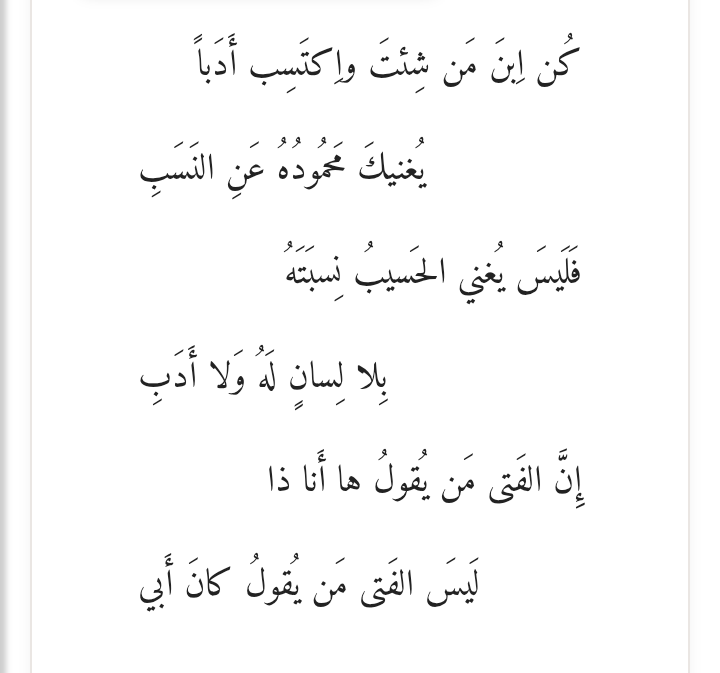 كُن اِبنَ مَن شِئتَ واِكتَسِب أَدَباً
يُغنيكَ مَحمُودُهُ عَنِ النَسَبِ
فَلَيسَ يُغني الحَسيبُ نِسبَتَهُ
بِلا لِسانٍ لَهُ وَلا أَدَبِ
إِنَّ الفَتى مَن يُقولُ ها أَنا ذا
لَيسَ الفَتى مَن يُقولُ كانَ أَبي